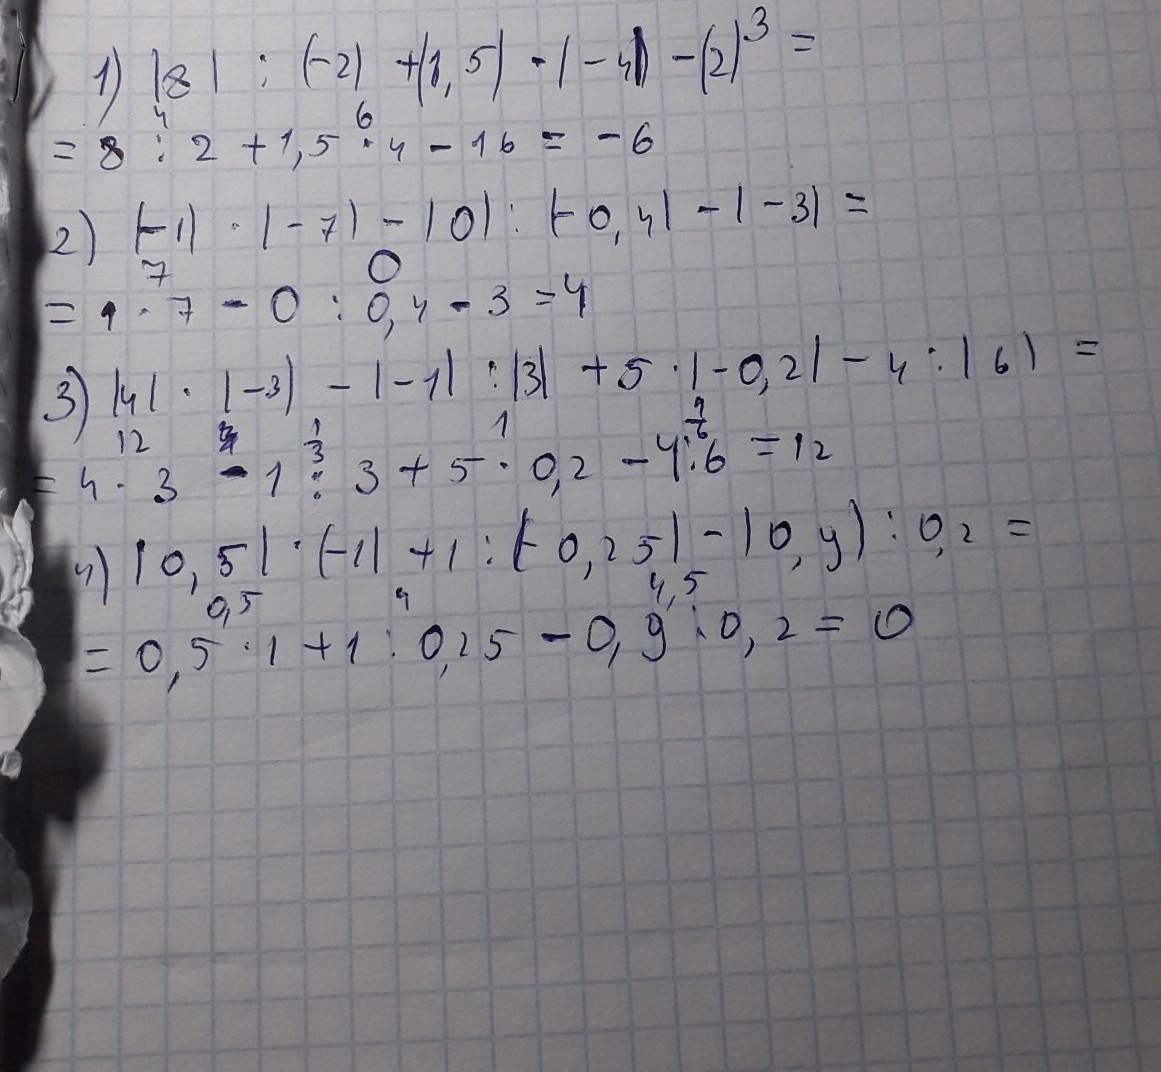 1) |8| : (-2) + |1,5| · |-4| - (2)³ =
4 6
= 8 : 2 + 1,5 · 4 - 16 = -6
2) |-1| · |-7| - |0| : |-0,4| - |-3| =
7 0
= 1 · 7 - 0 : 0,4 - 3 = 4
3) |4| · |-3| - |-1| : |3| + 5 · |-0,2| - 4 : |6| =
12 1/3 1 4/6
= 4 · 3 - 1 : 3 + 5 · 0,2 - 4 : 6 = 12
4) |0,5| · |-1| + 1 : |-0,25| - |0,9| : 0,2 =
0,5 4 4,5
= 0,5 · 1 + 1 : 0,25 - 0,9 : 0,2 = 0